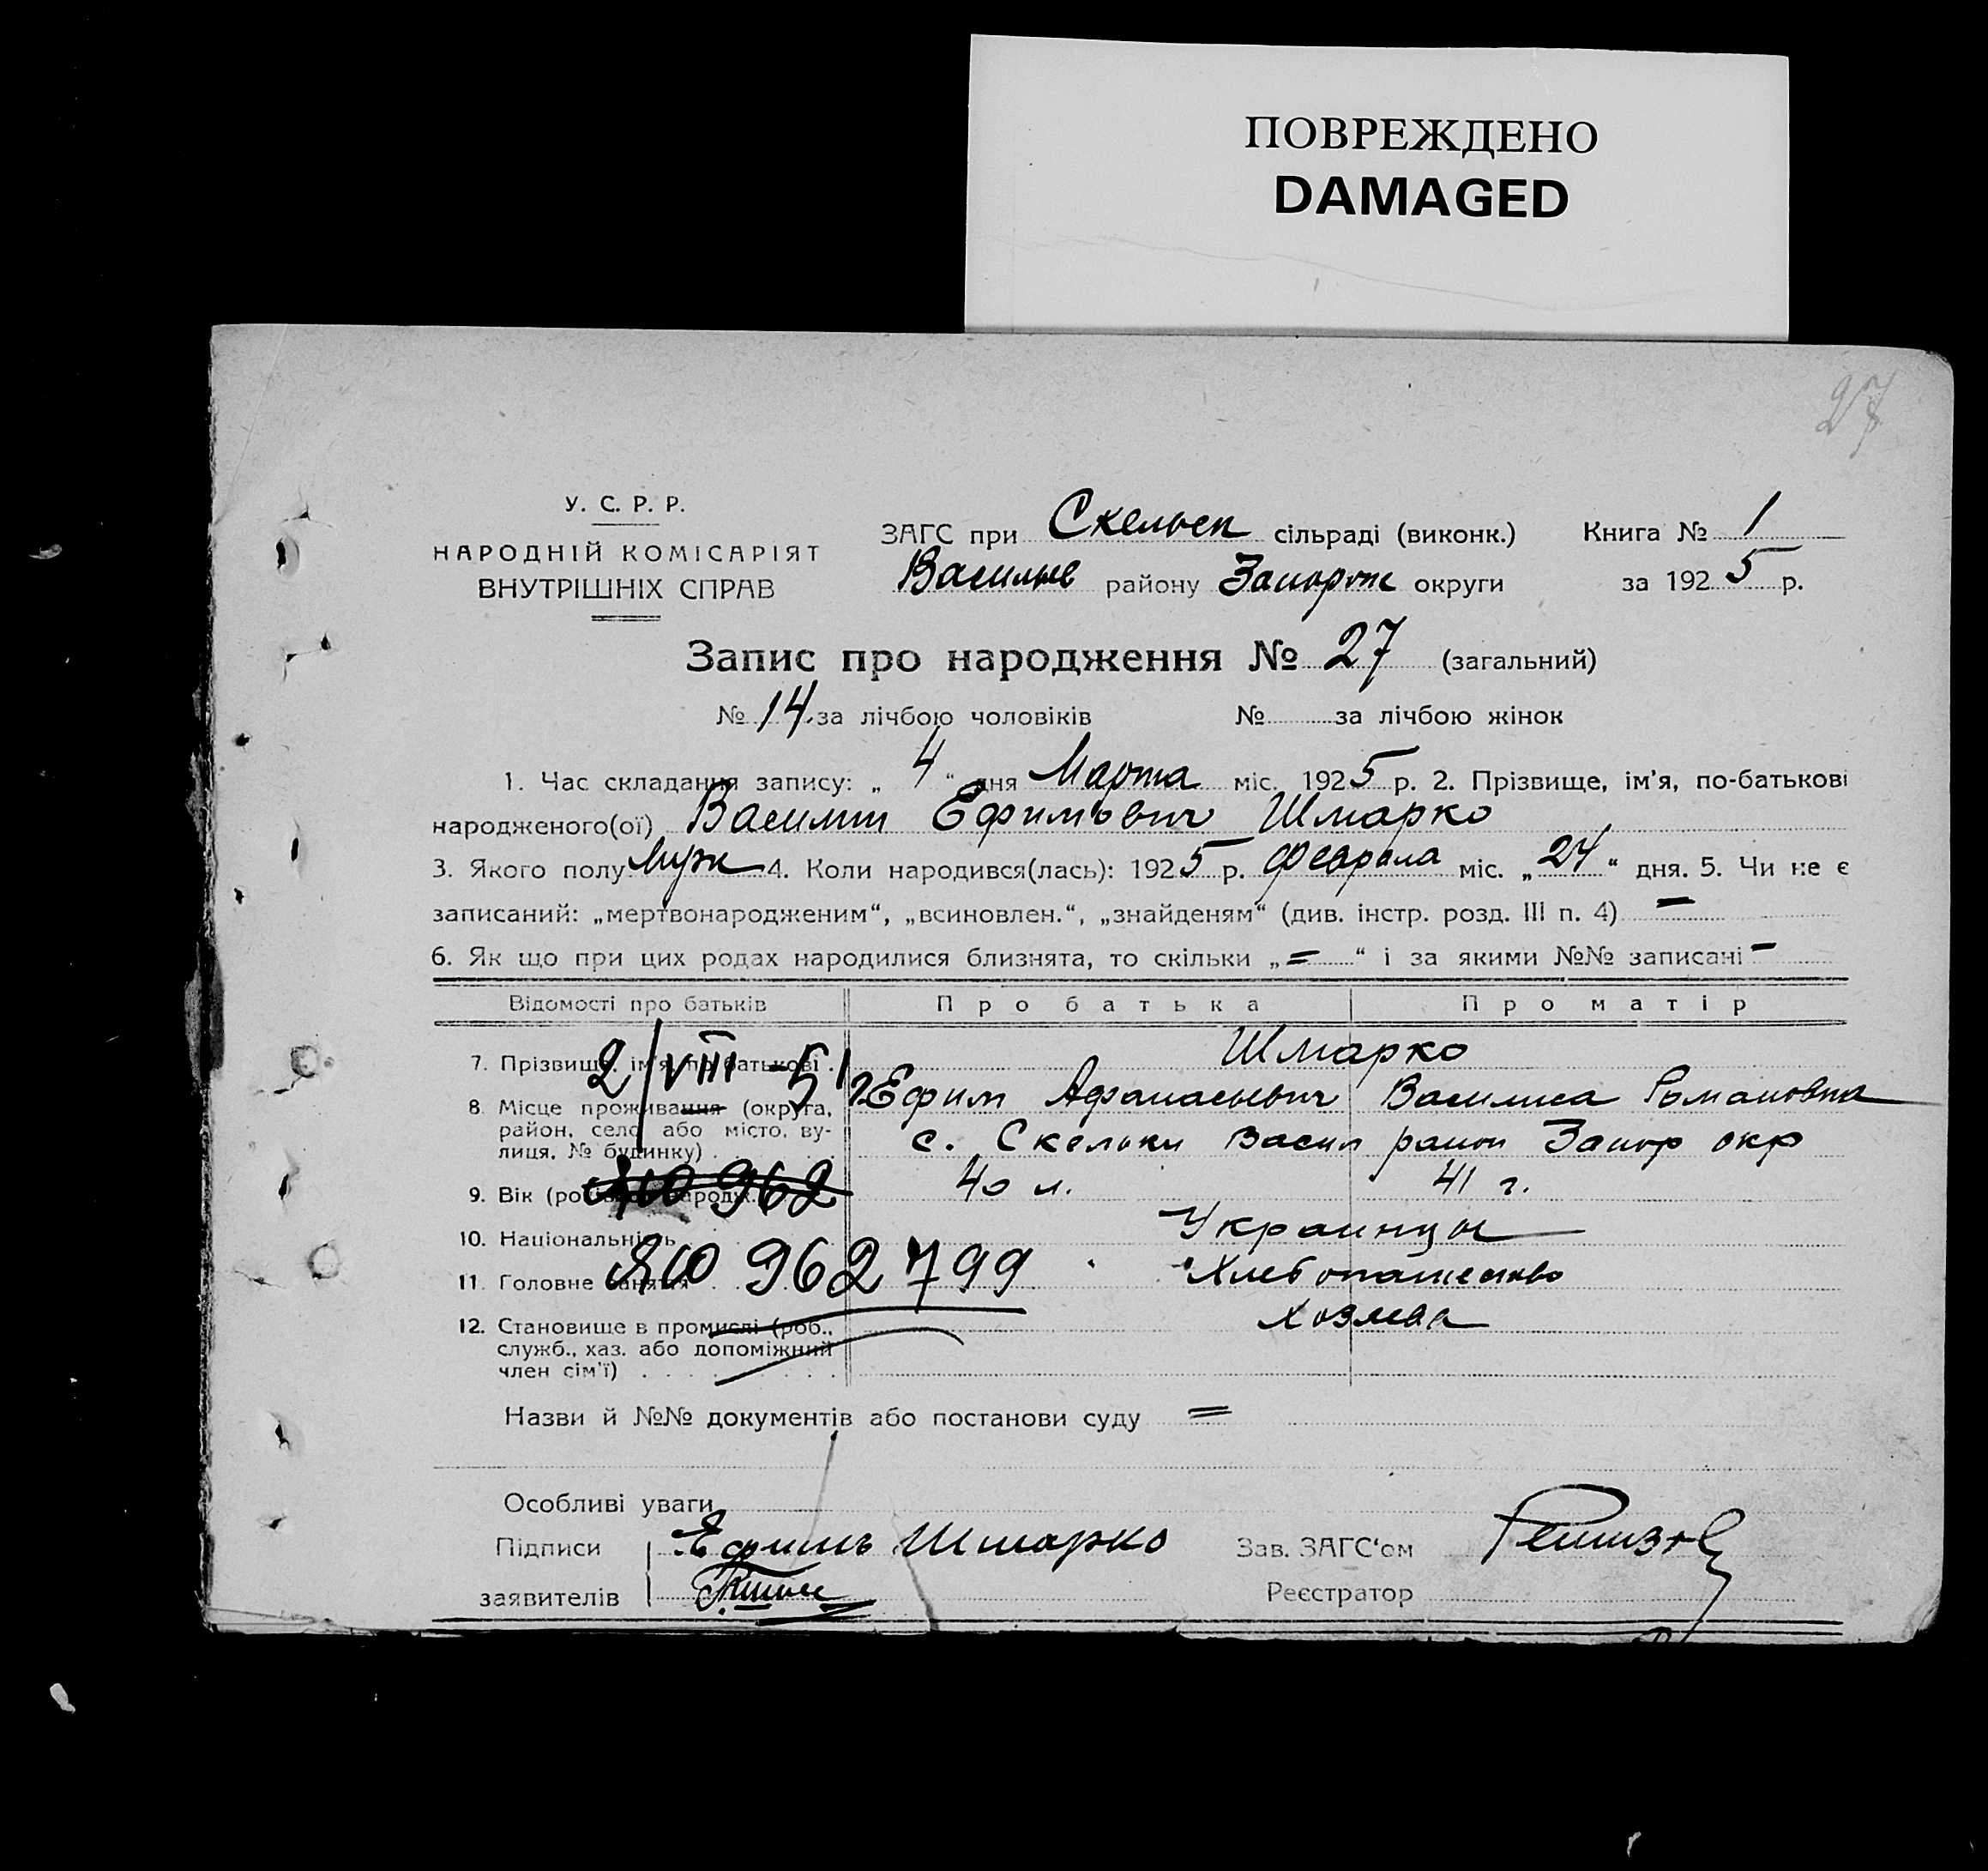 ПОВРЕЖДЕНО
DAMAGED
27
У. С. Р. Р.
НАРОДНІЙ КОМІСАРІЯТ
ВНУТРІШНІХ СПРАВ
ЗАГС при Скельск сільраді (виконк.) Книга № 1
Васильев району Запорож округи за 1925 р.
Запис про народження № 27 (загальний)
№ 14 за лічбою чоловіків № за лічбою жінок
1. Час складання запису: „ 4 “ дня Марта міс. 1925 р. 2. Прізвище, ім'я, по-батькові
народженого(ої) Василий Ефимович Шмарко
3. Якого полу муж 4. Коли народився(лась): 1925 р. февраля міс. „ 24 “ дня. 5. Чи не є
записаний: „мертвонародженим“, „всиновлен.“, „знайденям“ (див. інстр. розд. III п. 4) —
6. Як що при цих родах народилися близнята, то скільки „ = “ і за якими №№ записані —
Відомості про батьків Про батька Про матір
7. Прізвище, ім'я, по батькові . Шмарко
2/VIII-51 г. Ефим Афанасьевич Василиса Романовна
8. Місце проживання (округа,
район, село або місто, ву-
лиця, № будинку) . с. Скельки Васил район Запор окр
9. Вік 40 л. 41 г.
ЯЮ 962
10. Національність Украинцы
11. Головне заняття Хлебопашество
ЯЮ 962799
12. Становище в промислі (роб., хозяева
служб., хаз. або допоміжний
член сім'ї)
Назви й №№ документів або постанови суду =
Особливі уваги
Підписи Ефимъ Шмарко Зав. ЗАГС'ом
заявителів Реєстратор